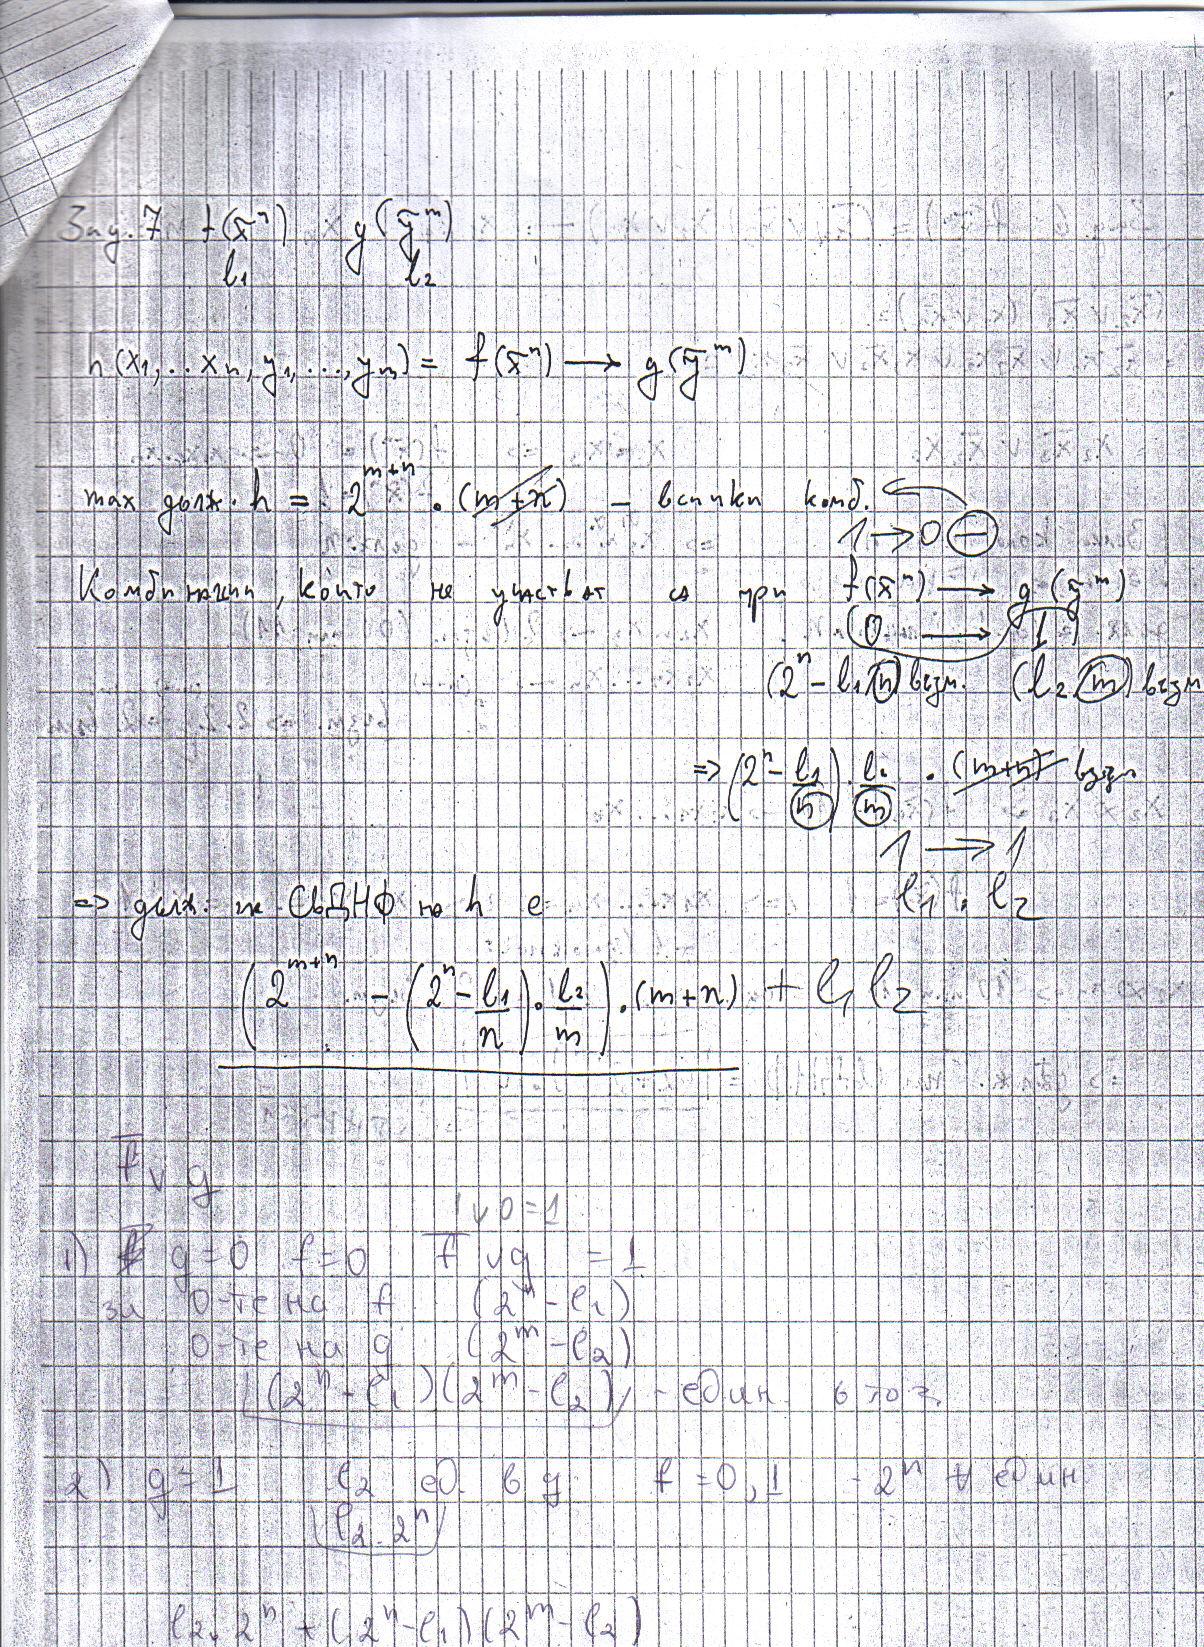 Зад. 7 f(x̃ⁿ) g(ỹᵐ)
l₁ l₂
h(x₁,..xₙ, y₁,...,yₘ) = f(x̃ⁿ) → g(ỹᵐ)
max дълж. h = 2^(m+n) . (m+n) – всички комб.
1 → 0 –
Комбинации, които не участват са при f(x̃ⁿ) → g(ỹᵐ)
(0 → 1)
(2ⁿ - l₁/n) възм. (l₂/m) възм
=> (2ⁿ - l₁/n) . l₂/m . (m+n) възм
1 → 1
=> дълж. на СъвДНФ на h е l₁ . l₂
(2^(m+n) - (2ⁿ - l₁/n) . l₂/m) . (m+n) + l₁ l₂
f̄ v g
1 v 0 = 1
1) g=0 f=0 f̄ v g = 1
за 0-те на f (2ⁿ - l₁)
0-те на g (2ᵐ - l₂)
(2ⁿ - l₁)(2ᵐ - l₂) - един. в този
2) g=1 l₂ ед. в g f=0,1 - 2ⁿ ∀ един
l₂ . 2ⁿ
l₂ . 2ⁿ + (2ⁿ - l₁)(2ᵐ - l₂)